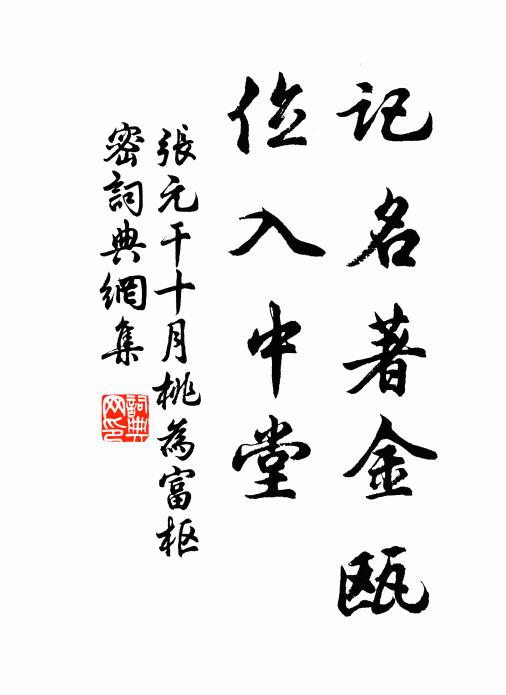 記名著金瓯
位入中堂
張元干十月桃為富枢
密詞典網集
詞典网印